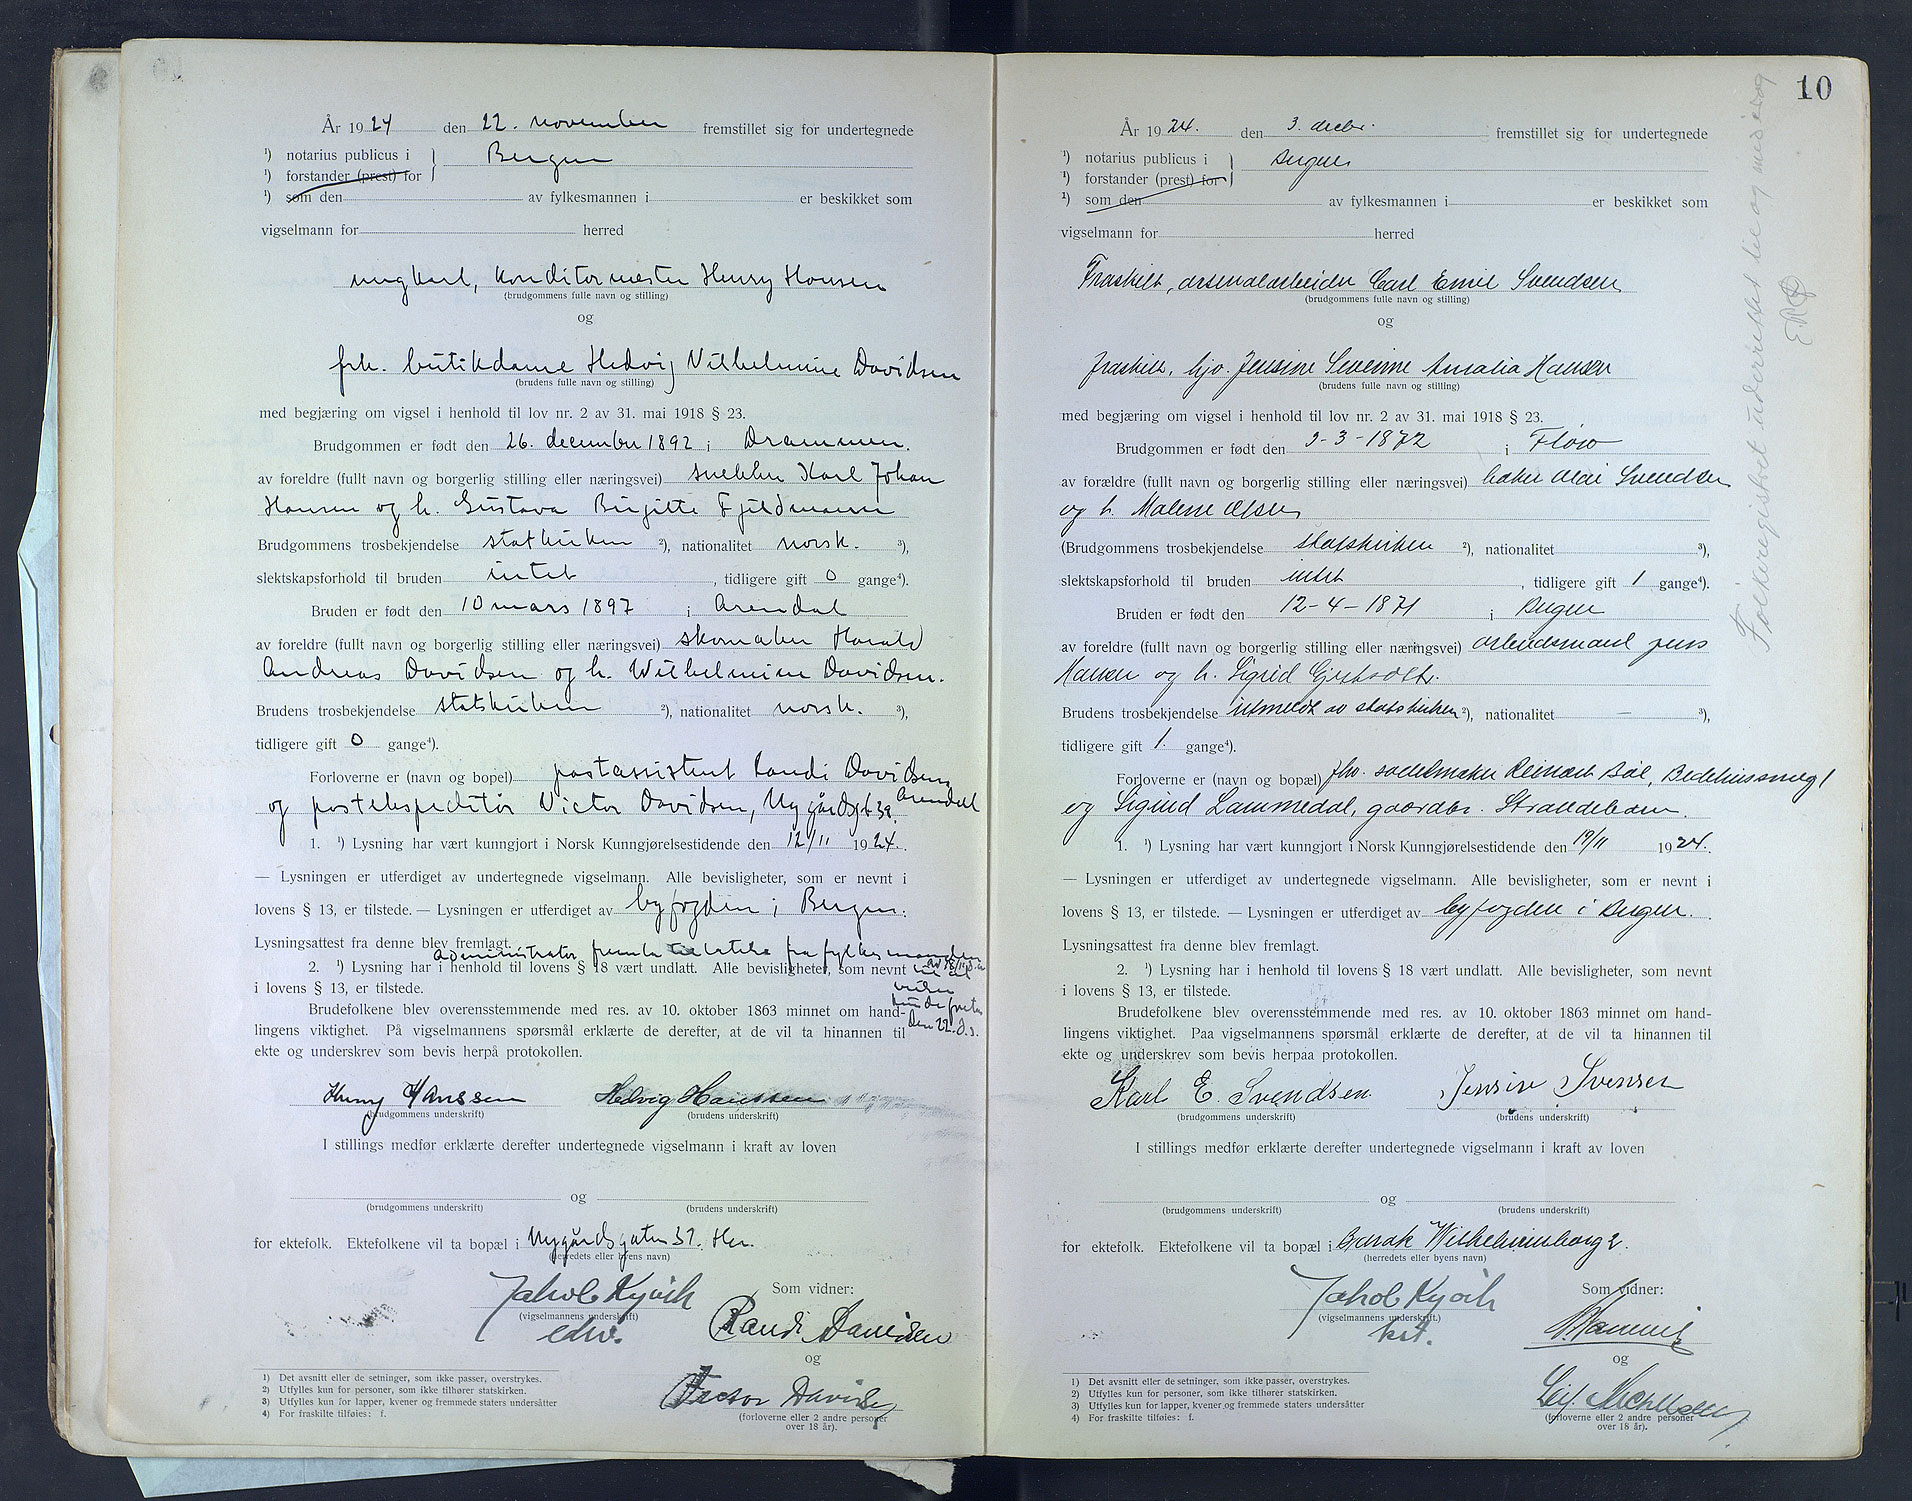 År 1924 den 22. november fremstillet sig for undertegnede
1) notarius publicus i Bergen
1) forstander (prest) for
1) som den av fylkesmannen i er beskikket som
vigselmann for herred
ungkarl, konditormester Henry Hansen
(brudgommens fulle navn og stilling)
og
frk. butikdame Hedvig Vilhelmine Davidsen
(brudens fulle navn og stilling)
med begjæring om vigsel i henhold til lov nr. 2 av 31. mai 1918 § 23.
Brudgommen er født den 26. december 1892 i Drammen.
av foreldre (fullt navn og borgerlig stilling eller næringsvei) snekker Karl Johan
Hansen og h. Gustava Birgitte Fjeldmann
Brudgommens trosbekjendelse statskirken 2), nationalitet norsk. 3),
slektskapsforhold til bruden intet, tidligere gift 0 gange4).
Bruden er født den 10 mars 1897 i Arendal
av foreldre (fullt navn og borgerlig stilling eller næringsvei) skomaker Harald
Andreas Davidsen og h. Wilhelmine Davidsen.
Brudens trosbekjendelse statskirken 2), nationalitet norsk. 3),
tidligere gift 0 gange4).
Forloverne er (navn og bopel) postassistent Randi Davidsen, Arendal
og postekspeditør Victor Davidsen, Nygårdsgt 39.
1. 1) Lysning har vært kunngjort i Norsk Kunngjørelsestidende den 12/11 1924.
— Lysningen er utferdiget av undertegnede vigselmann. Alle bevisligheter, som er nevnt i
lovens § 13, er tilstede. — Lysningen er utferdiget av byfogden i Bergen.
Lysningsattest fra denne blev fremlagt.
Administrator fremla tillatelse fra fylkesmannen
2. 1) Lysning har i henhold til lovens § 18 vært undlatt. Alle bevisligheter, som nevnt
i lovens § 13, er tilstede.
Brudefolkene blev overensstemmende med res. av 10. oktober 1863 minnet om hand-
lingens viktighet. På vigselmannens spørsmål erklærte de derefter, at de vil ta hinannen til
den 22. d.s.
ekte og underskrev som bevis herpå protokollen.
Henry Hanssen Hedvig Hanssen
(brudgommens underskrift) (brudens underskrift)
I stillings medfør erklærte derefter undertegnede vigselmann i kraft av loven
og
(brudgommens underskrift) (brudens underskrift)
for ektefolk. Ektefolkene vil ta bopæl i Nygårdsgaten 37. Her.
(herredets eller byens navn)
Jakob Kjøih
(vigselmannens underskrift)
Som vidner:
Randi Davidsen
og
Victor Davidsen
(forloverne eller 2 andre personer
over 18 år).
1) Det avsnitt eller de setninger, som ikke passer, overstrykes.
2) Utfylles kun for personer, som ikke tilhører statskirken.
3) Utfylles kun for lapper, kvener og fremmede staters undersåtter
4) For fraskilte tilføies: f.
10
År 1924. den 3. decbr. fremstillet sig for undertegnede
1) notarius publicus i Bergen
1) forstander (prest) for
1) som den av fylkesmannen i er beskikket som
vigselmann for herred
Fraskilt, arsenalarbeider Carl Emil Svendsen
(brudgommens fulle navn og stilling)
og
fraskilt, hjv. Jensine Severine Amalia Hansen
(brudens fulle navn og stilling)
med begjæring om vigsel i henhold til lov nr. 2 av 31. mai 1918 § 23.
Brudgommen er født den 3-3-1872 i Florø
av forældre (fullt navn og borgerlig stilling eller næringsvei) baker Olai Svendsen
og h. Malene Olsen
(Brudgommens trosbekjendelse statskirken 2), nationalitet 3),
slektskapsforhold til bruden intet, tidligere gift 1 gange4).
Bruden er født den 12-4-1871 i Bergen
av foreldre (fullt navn og borgerlig stilling eller næringsvei) arbeidsmand Jens
Hansen og h. Sigrid
Brudens trosbekjendelse utmeldt av statskirken 2), nationalitet — 3),
tidligere gift 1. gange4).
Forloverne er (navn og bopæl) fhv. sadelmaker Reinert Bøe, Bedehussmug 1
og Sigurd Lammedal, gaardbr. Strandebarm.
1. 1) Lysning har vært kunngjort i Norsk Kunngjørelsestidende den 19/11 1924.
— Lysningen er utferdiget av undertegnede vigselmann. Alle bevisligheter, som er nevnt i
lovens § 13, er tilstede. — Lysningen er utferdiget av byfogden i Bergen.
Lysningsattest fra denne blev fremlagt.
2. 1) Lysning har i henhold til lovens § 18 vært undlatt. Alle bevisligheter, som nevnt
i lovens § 13, er tilstede.
Brudefolkene blev overensstemmende med res. av 10. oktober 1863 minnet om hand-
lingens viktighet. Paa vigselmannens spørsmål erklærte de derefter, at de vil ta hinannen til
ekte og underskrev som bevis herpaa protokollen.
Karl E. Svendsen Jensine Svensen
(brudgommens underskrift) (brudens underskrift)
I stillings medfør erklærte derefter undertegnede vigselmann i kraft av loven
og
(brudgommens underskrift) (brudens underskrift)
for ektefolk. Ektefolkene vil ta bopæl i Barak Wilhelmineborg 2.
(herredets eller byens navn)
Jakob Kjøih
(vigselmannens underskrift.)
kst.
Som vidner:
og
Leif
(forloverne eller 2 andre personer
over 18 år).
1) Det avsnitt eller de setninger, som ikke passer, overstrykes.
2) Utfylles kun for personer, som ikke tilhører statskirken.
3) Utfylles kun for lapper, kvener og fremmede staters undersåtter
4) For fraskilte tilføies: f.
Folkeregistret underrettet